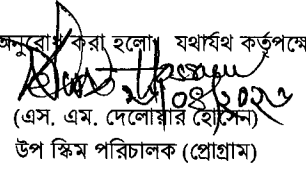 অনুরোধ করা হলো। যথার্যথ কর্তৃপক্ষে
(এস. এম. দেলোয়ার হোসেন)
উপ স্কিম পরিচালক (প্রোগ্রাম)